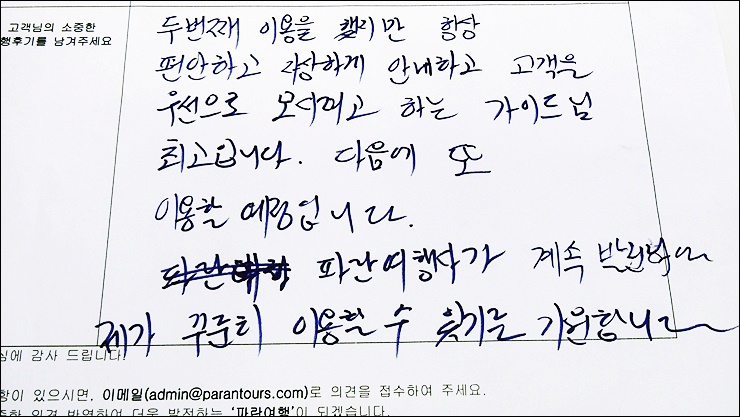 고객님의 소중한
행후기를 남겨주세요
두번째 이용을 했지만 항상
편안하고 자상하게 안내하고 고객을
우선으로 모시려고 하는 가이드님
최고입니다. 다음에 또
이용할 예정입니다.
파란여행사가 계속 발전하
제가 꾸준히 이용할 수 있기를 기원합니다
심에 감사 드립니다!
항이 있으시면, 이메일(admin@parantours.com)로 의견을 접수하여 주세요.
중한 의견 반영하여 더욱 발전하는 '파란여행'이 되겠습니다.